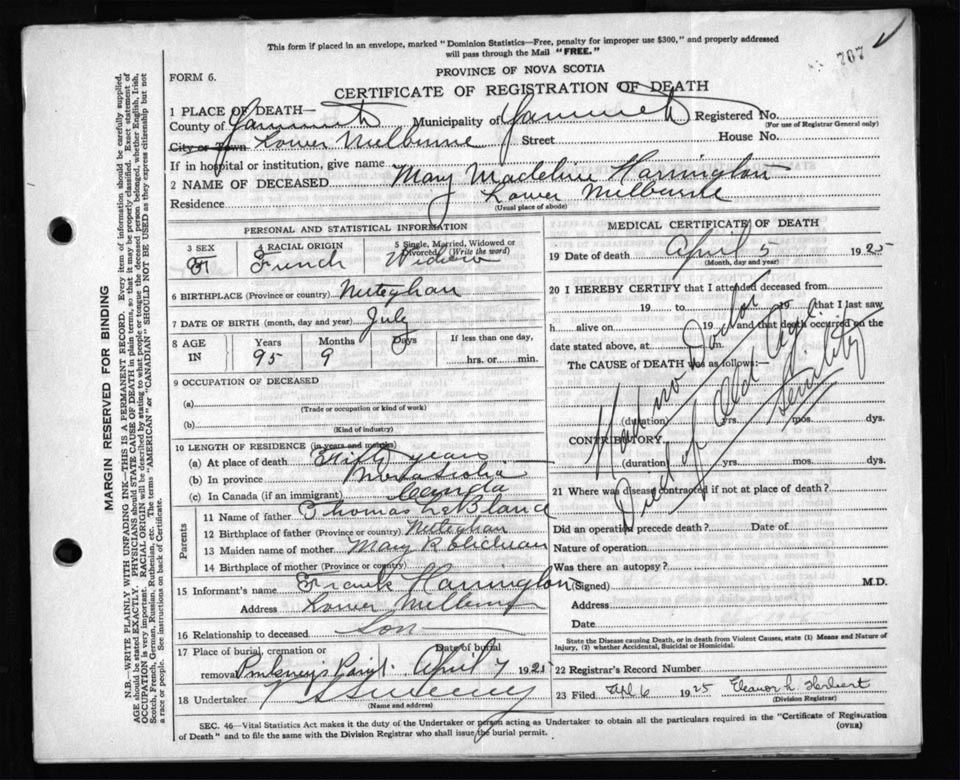 This form if placed in an envelope, marked "Dominion Statistics—Free, penalty for improper use $300," and properly addressed
will pass through the Mail "FREE."
707
PROVINCE OF NOVA SCOTIA
FORM 6.
CERTIFICATE OF REGISTRATION OF DEATH
1 PLACE OF DEATH—
County of Yarmouth Municipality of Yarmouth Registered No.
(For use of Registrar General only)
City or Town Lower Melbourne Street House No.
If in hospital or institution, give name
2 NAME OF DECEASED Mary Madeline Harrington
Residence Lower Melbourne
(Usual place of abode)
PERSONAL AND STATISTICAL INFORMATION
3 SEX 4 RACIAL ORIGIN 5 Single, Married, Widowed or Divorced (Write the word)
F French Widow
6 BIRTHPLACE (Province or country) Meteghan
7 DATE OF BIRTH (month, day and year) July
8 AGE IN Years Months Days If less than one day,
95 9 hrs. or min.
9 OCCUPATION OF DECEASED
(a)
(Trade or occupation or kind of work)
(b)
(Kind of industry)
10 LENGTH OF RESIDENCE (in years and months)
(a) At place of death Fifty years
(b) In province Nova Scotia
(c) In Canada (if an immigrant) Canada
Parents
11 Name of father Thomas LeBlanc
12 Birthplace of father (Province or country) Meteghan
13 Maiden name of mother Mary
14 Birthplace of mother (Province or country)
15 Informant's name Frank Harrington
Address Lower Melbourne
16 Relationship to deceased Son
17 Place of burial, cremation or removal Date of burial
Pinkneys Point April 7 1925
18 Undertaker Sweeny
(Name and address)
MEDICAL CERTIFICATE OF DEATH
19 Date of death April 5 1925
(Month, day and year)
20 I HEREBY CERTIFY that I attended deceased from
19 to 19 that I last saw
h alive on 19 and that death occurred on the
date stated above, at m.
The CAUSE OF DEATH was as follows:—
Had no Doctor
Died of Old Age
Senility
(duration) yrs. mos. dys.
CONTRIBUTORY
(duration) yrs. mos. dys.
21 Where was disease contracted if not at place of death?
Did an operation precede death? Date of
Nature of operation
Was there an autopsy?
(Signed) M.D.
Address
Date
State the Disease causing Death, or in death from Violent Causes, state (1) Means and Nature of
Injury, (2) whether Accidental, Suicidal or Homicidal.
22 Registrar's Record Number
23 Filed Apl 6 1925 Eleanor L. Herbert
(Division Registrar)
SEC. 46—Vital Statistics Act makes it the duty of the Undertaker or person acting as Undertaker to obtain all the particulars required in the "Certificate of Registration
of Death" and to file the same with the Division Registrar who shall issue the burial permit.
(OVER)
MARGIN RESERVED FOR BINDING
N.B.—WRITE PLAINLY WITH UNFADING INK—THIS IS A PERMANENT RECORD. Every item of information should be carefully supplied.
AGE should be stated EXACTLY. PHYSICIANS should STATE CAUSE OF DEATH in plain terms, so that it may be properly classified. Exact statement of
OCCUPATION is very important. RACIAL ORIGIN will be described by stating to what people or tongue the deceased person belonged, whether English, Irish,
Scotch, French, German, Russian, Ruthenian, etc. The terms "AMERICAN" or "CANADIAN" SHOULD NOT BE USED as they express citizenship but not
a race or people. See instructions on back of Certificate.